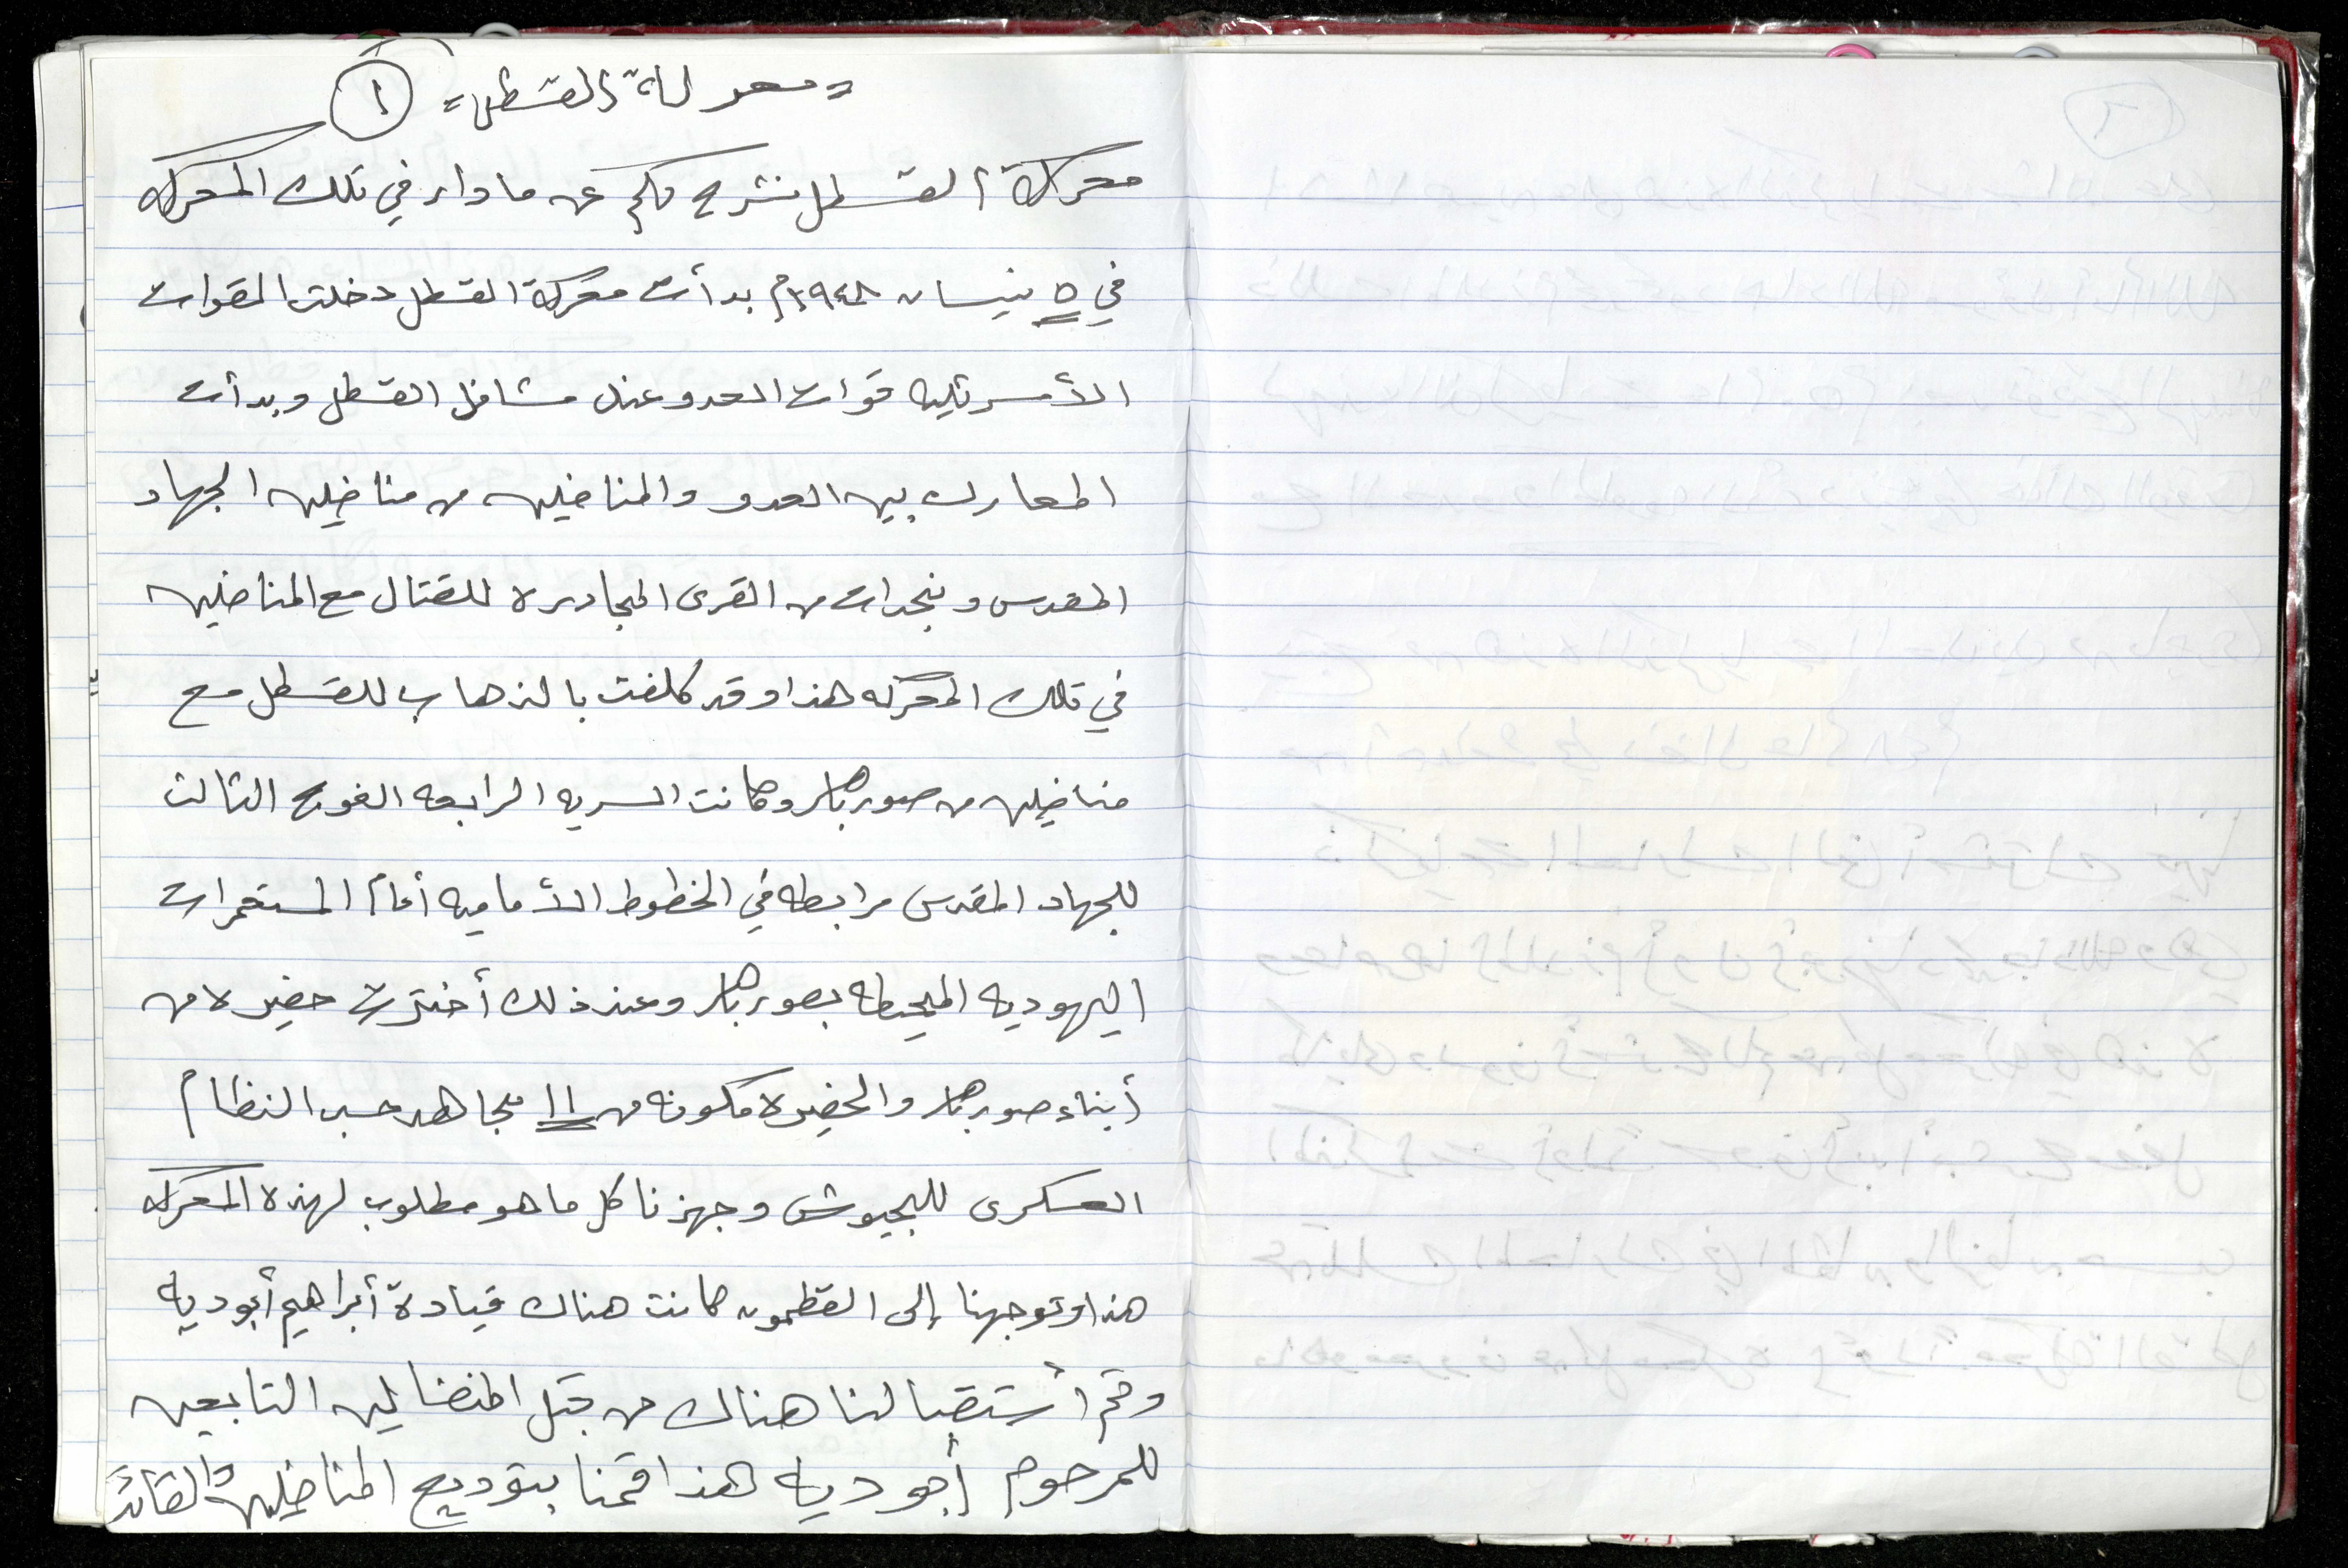 = معركة القسطل = ١
معركة القسطل نشرح لكم عن ما دار في تلك المعركه
في ٥ نيسان ١٩٤٨م بدأت معركة القسطل دخلت القوات
الأسرئليه قوات العدو عند مشافل القسطل وبدأت
المعارك بين العدو والمناضلين من مناضلين الجهاد
المقدس ونجدات من القرى المجاوره للقتال مع المناضلين
في تلك المعركه هذا وقد كلفت بالذهاب للقسطل مع
مناضلين من صورباهر وكانت السريه الرابعه الفوج الثالث
للجهاد المقدس مرابطه في الخطوط الأماميه أمام المستعمرات
اليهوديه المحيطه بصورباهر وعند ذلك أخترت حضيره من
أبناء صورباهر والحضيره مكونه من ١١ مجاهد حسب النظام
العسكرى للجيوش وجهزنا كل ما هو مطلوب لهذه المعركه
هذا وتوجهنا إلى القطمون كانت هناك قيادة أبراهيم أبوديه
وتم أستقبالنا هناك من قبل المنضالين التابعين
للمرحوم أبوديه هذا قمنا بتوديع المناضلين والقائد